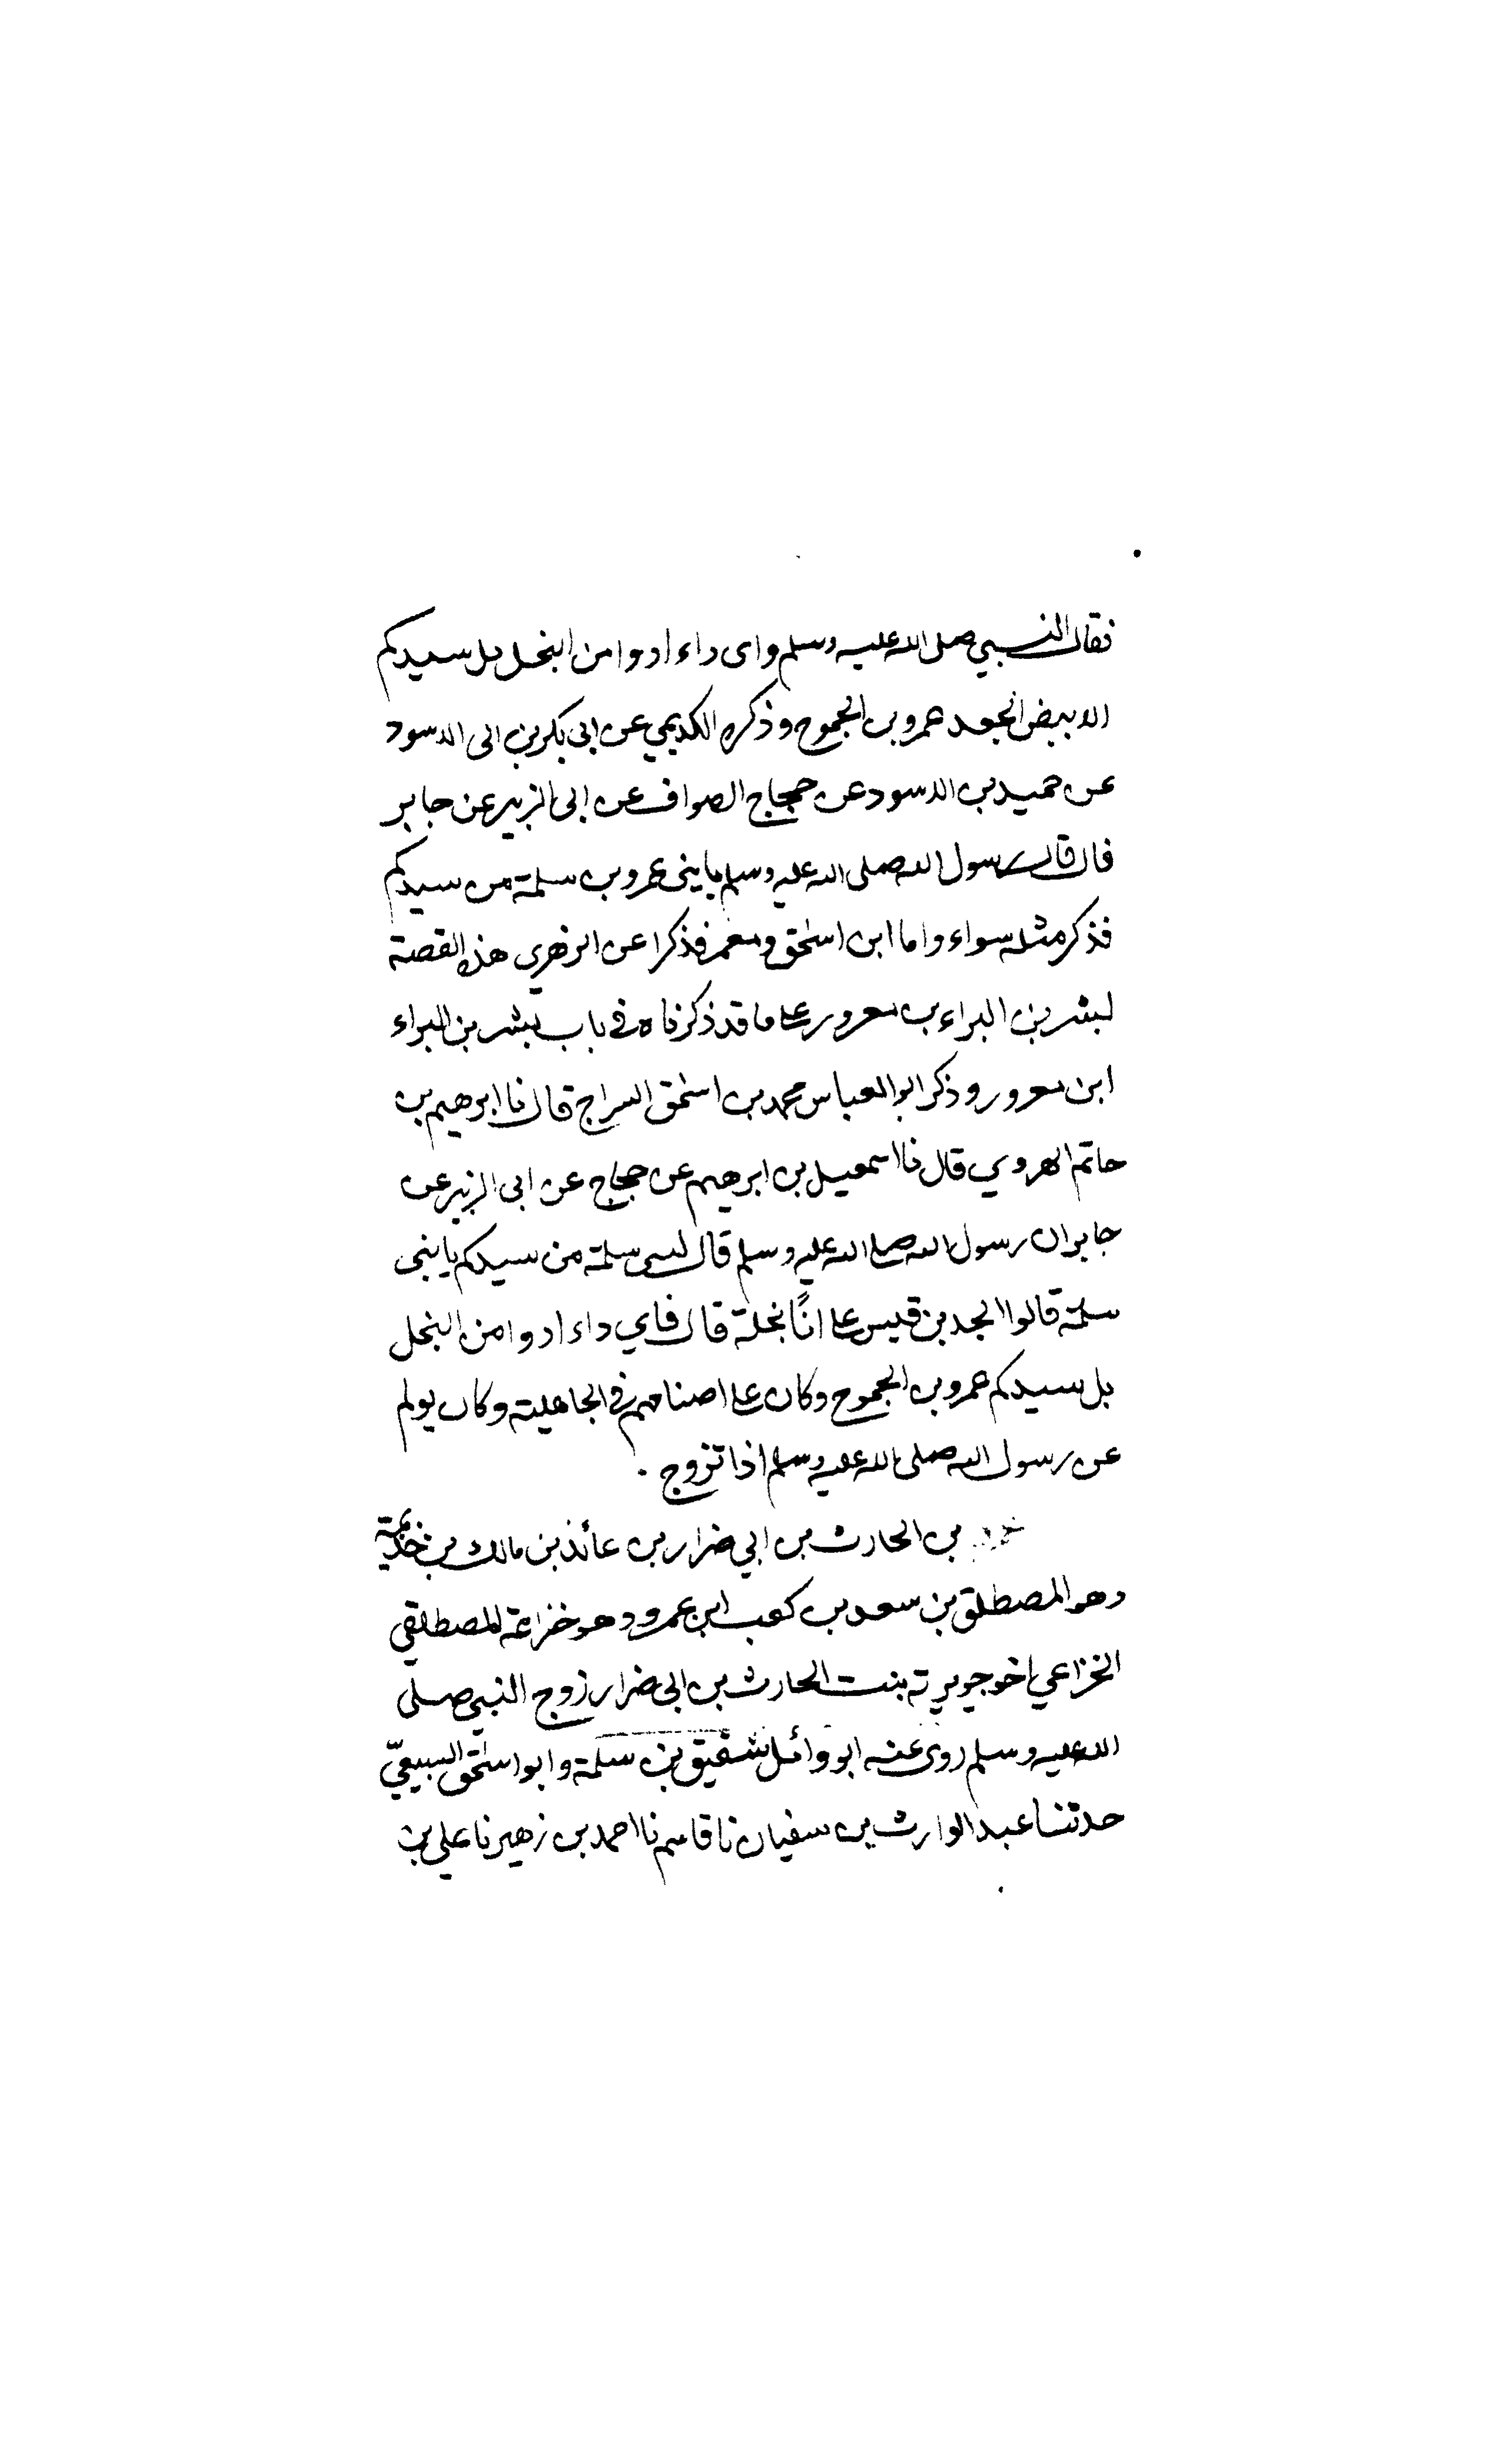 فقال النبي صلى الله عليه وسلم واى داء ادوا من البخل بل سيدكم
الابيض الجعد عمرو بن الجموح وذكره الكديمي عن ابى بكر بن ابى الاسود
عن حميد بن الاسود عن حجاج الصواف عن ابى الزبير عن جابر
قال قال رسول الله صلى الله عليه وسلم يا بنى عمرو بن سلمة من سيدكم
فذكر مثله سواء واما ابن اسحق ومعمر فذكرا عن الزهري هذه القصة
لبشر بن البراء بن معرور على ما قد ذكرناه فى باب بشر بن البراء
ابن معرور وذكر ابو العباس محمد بن اسحق السراج قال نا ابرهيم بن
حاتم الهروي قال نا اسمعيل بن ابرهيم عن حجاج عن ابى الزبير عن
جابر ان رسول الله صلى الله عليه وسلم قال لبنى سلمة من سيدكم يا بنى
سلمة قالوا الجد بن قيس على انًا نبخله قال فاي داء ادوا من البخل
بل سيدكم عمرو بن الجموح وكان على اصنامهم فى الجاهلية وكان يولم
عن رسول الله صلى الله عليه وسلم اذا تزوج .
بن الحارث بن ابي ضرار بن عائذ بن مالك بن خذيمة
وهو المصطلق بن سعد بن كعب ابن عمرو وهو خزاعة المصطلقي
الخزاعي اخو جويرية بنت الحارث بن ابى ضرار زوج النبي صلى
الله عليه وسلم روى عنه ابو وائل شقيق بن سلمة وابو اسحق السبيعيّ
حدثنا عبد الوارث بن سفيان نا قاسم نا احمد بن زهير نا علي بن